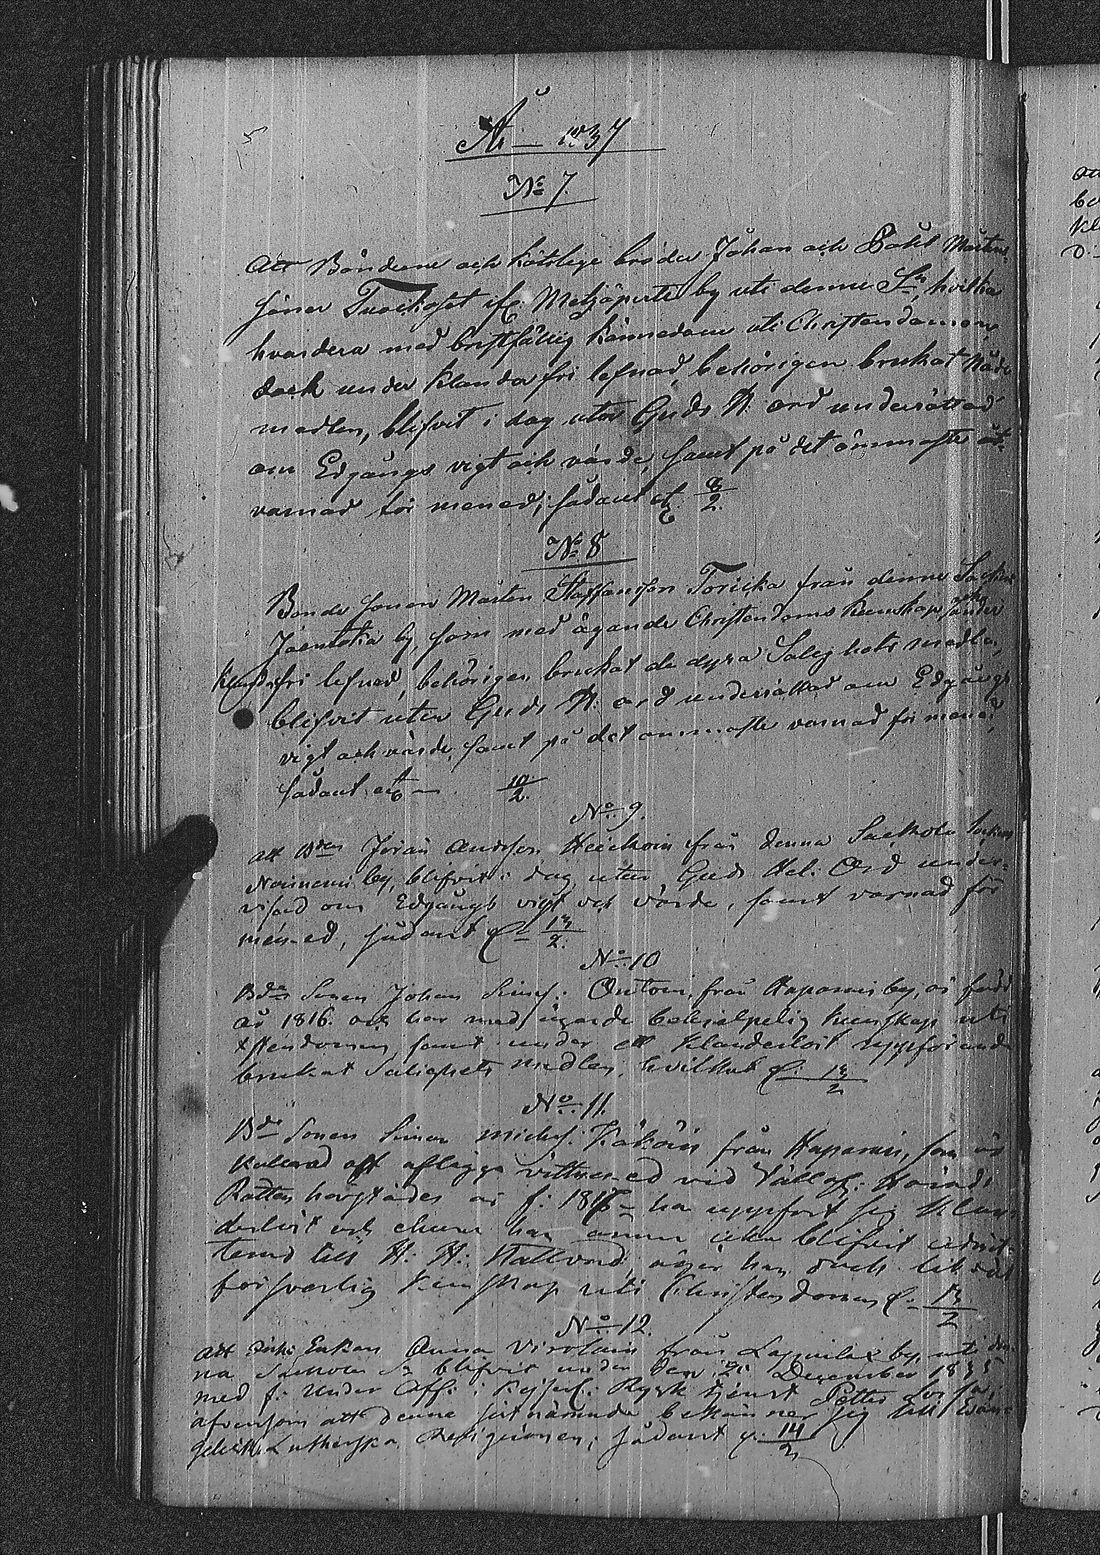 År 1837
No 7.
Att Bönderne och köttslige bröder Johan och Påhl Mårtens
söner af Metsäpirtti by uti denna Sn, hvilka
hvardera med bristfällig kännedom uti Christendomen,
dock under klanderfri lefnad, behörigen brukat Nåde
medlen, blifvit i dag utur Guds H. ord underrättad
om Edgångs vigt och värde, samt på det ömmaste åt-
varnad för mened; sådant etc. 8/2.
No 8
Bonde sonen Mårten Staffansson Toricka från denne Socken
by, som med ägande Christendoms kunskap, under
klanderfri lefnad, behörigen brukat de dyra Salighets medlen,
blifvit utur Guds H. ord underrättad om Edgångs
vigt och värde, samt på det ömmaste varnad för mened,
sådant etc 10/2.
No 9.
Att Bden Jöran Andsson från denna Sackola Sockens
by, blifvit i dag utur Guds Hel: Ord under-
visad om Edgångs vigt och värde, samt varnad för
mened, sådant etc 13/2.
No 10
Bde Sonen Johan Sims: från Haparais by, är född
år 1816. och har med ägande behjelpelig kunskap uti
Xstendomen, samt under ett klanderlöst uppförande
brukat Salighets medlen, hvilket etc. 13/2
No 11.
Bde Sonen Simon Michs: från Haparais, som är
kallad att aflägga vittnesed vid Häradss
Rätten är f: 1816 har uppfört sig klan
derlöst och ehuru han ännu icke blifvit admit
terad till H. H. Nattvard, äger han dock
försvarlig kunskap uti Christendomen etc. 13/2
No 12.
Att Enkan Anna från by uti den
na Sackola Sn blifvit under den 21 December 1835
med f: Under Off: i Kejserl: Rysk tjenst Petter
äfvensom att denne sistnämnde bekänner sig till Evan
gelisk Lutherska Religionen; sådant etc. 14/2